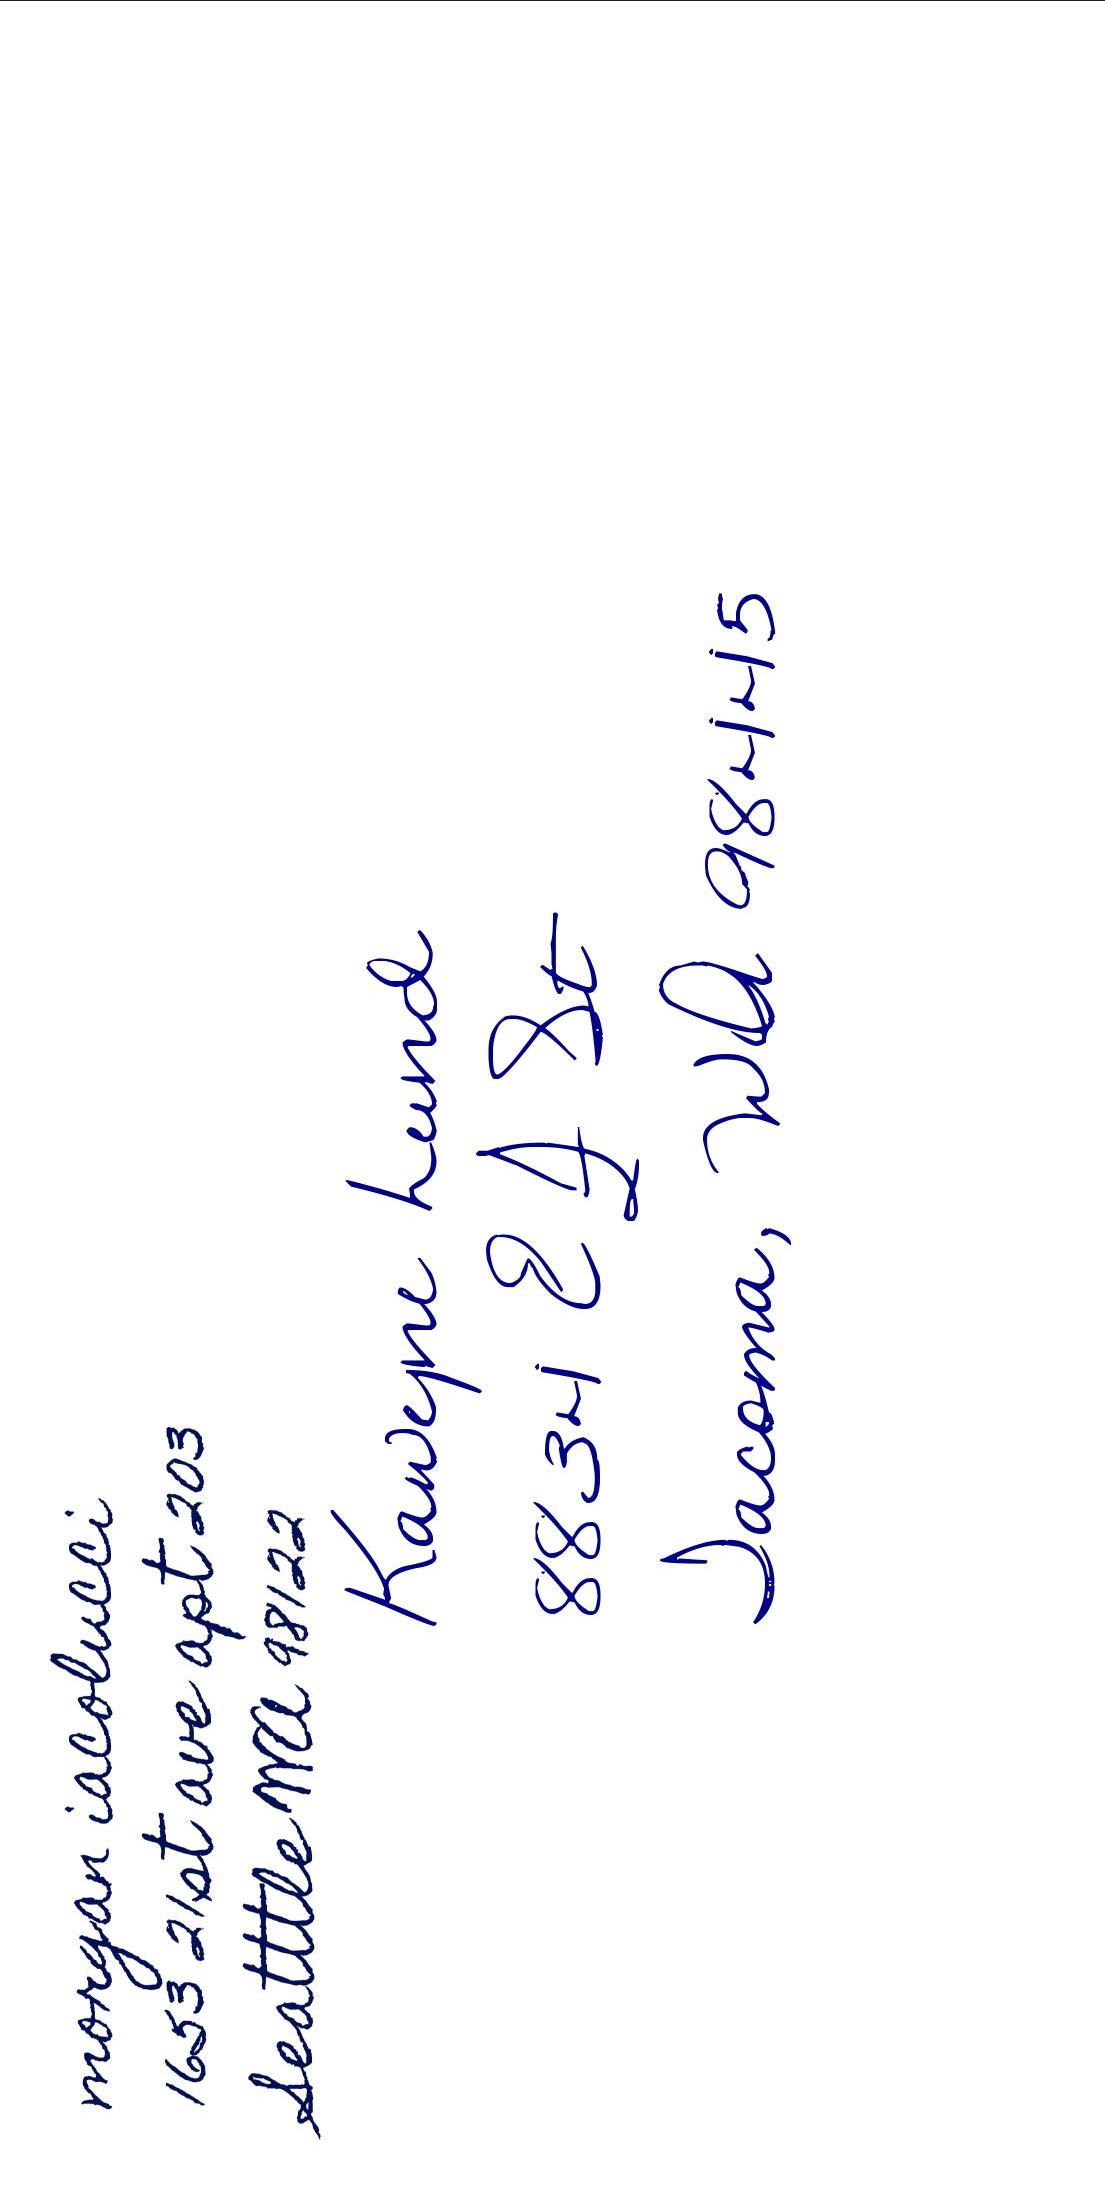 morgan iacolucci
1653 21st ave apt 203
Seattle WA 98122
Kaweyne Lund
8834 E A St
Tacoma, WA 98445